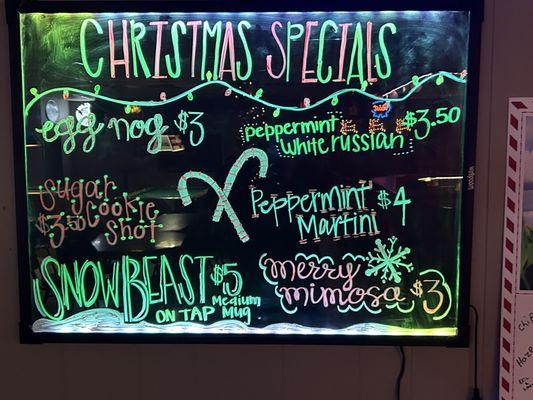 CHRISTMAS SPECIALS
egg nog $3
peppermint $3.50
white russian
Sugar
Cookie
$3.50 Shot
Peppermint $4
Martini
SNOWBEAST $5
ON TAP Medium Mug
merry
mimosa $3